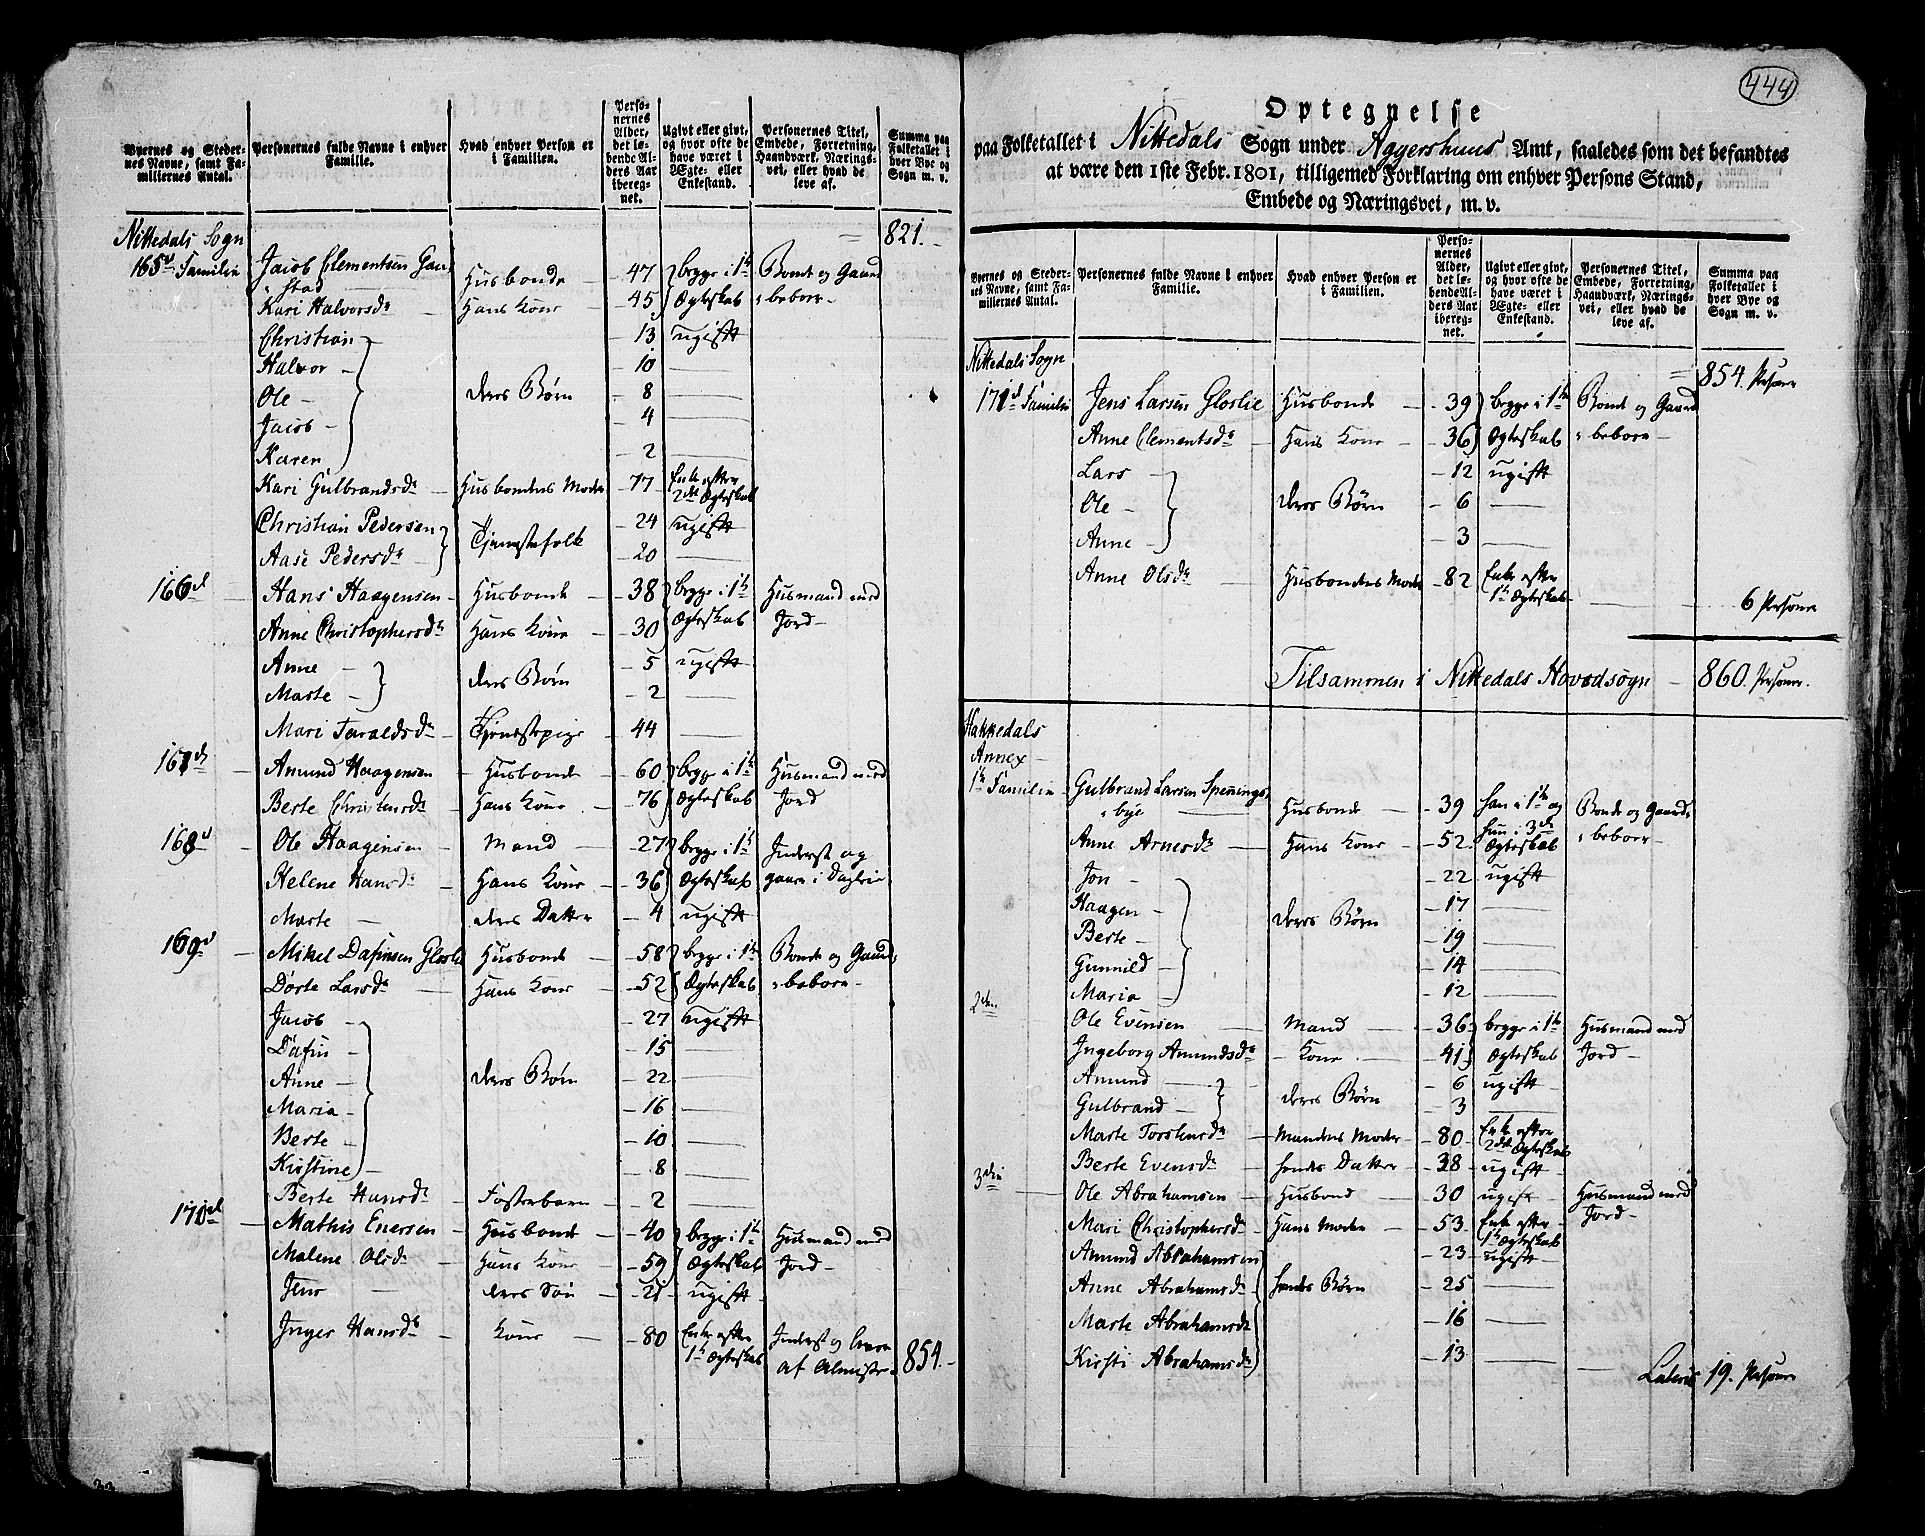 Byernes og Steder-
nes Navne, samt Fa-
miliernes Antal.
Personernes fulde Navne i enhver
Familie.
Hvad enhver Person er
i Familien.
Perso-
nernes
Alder,
det lø-
bende Al-
ders Aar
ibereg-
net.
Ugivt eller givt,
og hvor ofte de
have været i
Ægte- eller
Enkestand.
Personernes Titel,
Embede, Forretning,
Haandværk, Nærings-
vei, eller hvad de
leve af.
Summa paa
Folketallet i
hver Bye og
Sogn m. v.
Nittedals Sogn 821.
165d Familie Jacob Clementsen Gau-
stad Husbonde 47 begge i 1te Bonde og Gaard-
Kari Halvorsdr Hans Kone 45 Ægteskab beboer
Christian 13 ugift
Halvor 10
Ole deres Børn 8
Jacob 4
Karen 2
Kari Gulbrandsdr Husbondens Moder 77 Enke efter 2det Ægteskab
Christian Pedersen Tjenestefolk 24 ugift
Aase Pedersdr 20
166d Hans Haagensen Husbonde 38 begge i 1te Huusmand med
Anne Christophersdr Hans Kone 30 Ægteskab Jord
Anne deres Børn 5 ugift
Marte 2
Mari Taraldsdr Tjenestepige 44
167d Amund Haagensen Husbonde 60 begge i 1te Husmand med
Berte Christensdr Hans Kone 76 Ægteskab Jord
168d Ole Haagensen Mand 27 begge i 1te Inderst og
Helene Hansdr Hans Kone 36 Ægteskab gaaer i Dagleie
Marte deres Datter 4 ugift
169d Mikel Dafinsen Gloslie Husbonde 58 begge i 1te Bonde og Gaard-
Dorte Larsdr Hans Kone 52 Ægteskab beboer
Jacob 27 ugift
Dafin 15
Anne deres Børn 22
Maria 16
Berte 10
Kirstine 8
Berte Hansdr Fosterbarn 2
170d Mathis Enersen Husbonde 40 begge i 1te Husmand med
Malene Olsdr Hans Kone 59 Ægteskab Jord
Jens deres Søn 21 ugift
Inger Hansdr Kone 80 Enke efter Inderst og lever
1te Ægteskab af Almisse 854.
444
Optegnelse
paa Folketallet i Nittedals Sogn under Aggershuus Amt, saaledes som det befandtes
at være den 1ste Febr. 1801, tilligemed Forklaring om enhver Persons Stand,
Embede og Næringsvei, m. v.
Byernes og Steder-
nes Navne, samt Fa-
miliernes Antal.
Personernes fulde Navne i enhver
Familie.
Hvad enhver Person er
i Familien.
Perso-
nernes
Alder,
det lø-
bende Al-
ders Aar
ibereg-
net.
Ugivt eller givt,
og hvor ofte de
have været i
Ægte- eller
Enkestand.
Personernes Titel,
Embede, Forretning,
Haandværk, Nærings-
vei, eller hvad de
leve af.
Summa paa
Folketallet i
hver Bye og
Sogn m. v.
Nittedals Sogn 854. Personer
171d Familie Jens Larsen Gloslie Husbonde 39 begge i 1te Bonde og Gaard-
Anne Clementsdr Hans Kone 36 Ægteskab beboer
Lars 12 ugift
Ole deres Børn 6
Anne 3
Anne Olsdr Husbondens Moder 82 Enke efter
1te Ægteskab 6 Personer
Tilsammen i Nittedals Hovedsogn 860. Personer.
Hakkedals
Annex
1te Familie Gulbrand Larsen Spennings-
bye Husbonde 39 han i 1te og Bonde og Gaard-
Anne Arnesdr Hans Kone 52 hun i 3die Ægteskab beboer
Jon 22 ugift
Haagen 17
Berte deres Børn 19
Gunnild 14
Maria 12
2den Ole Evensen Mand 36 begge i 1te Husmand med
Ingeborg Amundsdr Kone 41 Ægteskab Jord
Amund deres Børn 6 ugift
Gulbrand 3
Marte Torstensdr Mandens Moder 80 Enke efter 2det Ægteskab
Berte Evensdr hendes Datter 38 ugift
3die Ole Abrahamsen Husbond 30 ugift Husmand med
Mari Christophersdr Hans Moder 53 Enke efter 1te Ægteskab Jord
Amund Abrahamsen 23 ugift
Anne Abrahamsdr hendes Børn 25
Marte Abrahamsdr 16
Kirsti Abrahamsdr 13
Lateris 19. Personer